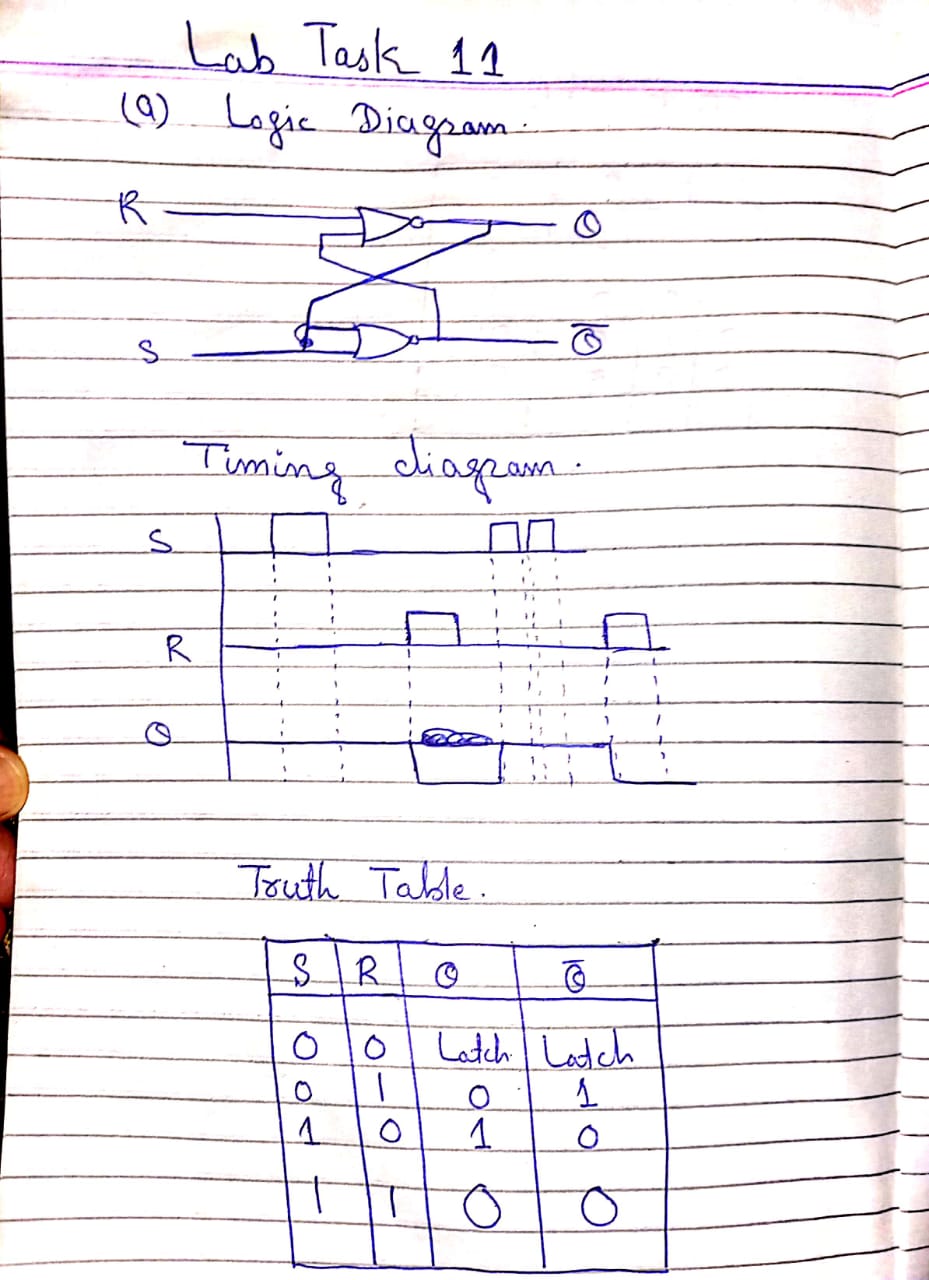 Lab Task 11
(a) Logic Diagram.
R Q
S Q̅
Timing diagram.
S
R
Q
Truth Table.
S R Q Q̅
0 0 Latch Latch
0 1 0 1
1 0 1 0
1 1 0 0